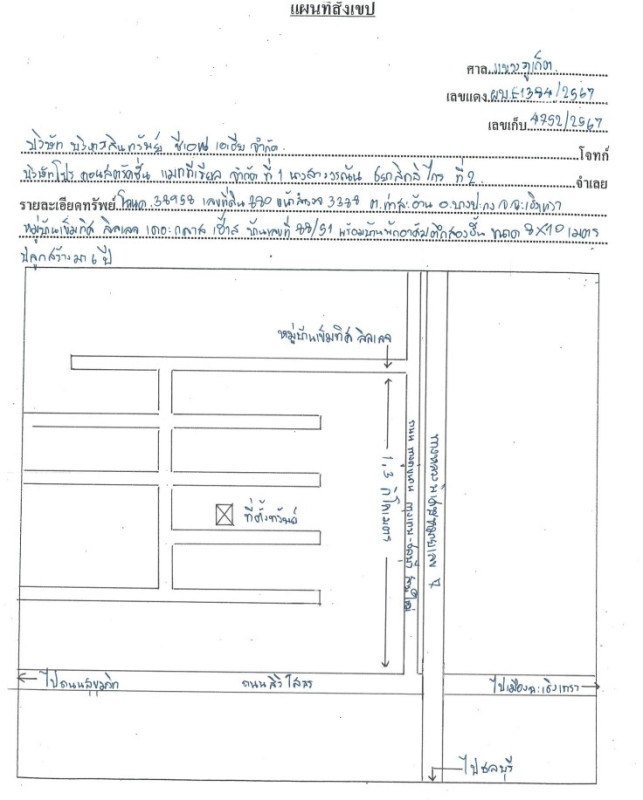 แผนที่สังเขป
ศาล แขวงภูเก็ต
เลขแดง ผบ.E1384/2567
เลขเก็บ 4752/2567
บริษัท บริหารสินทรัพย์ ซีเอฟ เอเชีย จำกัด โจทก์
บริษัทโปร คอนสตรัคชั่น แมททีเรียล จำกัด ที่ 1 นางสาววรณัน ที่ 2 จำเลย
รายละเอียดทรัพย์ โฉนด 38958 เลขที่ดิน 880 หน้าสำรวจ 3378 ต.ท่าสะอ้าน อ.บางปะกง จ.ฉะเชิงเทรา
หมู่บ้าน วิลเลจ เดอะ กลาส เฮ้าส์ บ้านเลขที่ 88/51 พร้อมบ้านพักอาศัยตึกสองชั้น ขนาด 8x10 เมตร
ปลูกสร้างมา 6 ปี
หมู่บ้าน วิลเลจ
1.3 กิโลเมตร
ถนน กรุงเทพ-ชลบุรี สายใหม่
ที่ตั้งทรัพย์
ไปถนนสุขุมวิท
ถนนสิริโสธร
ไปเมืองฉะเชิงเทรา
ไปชลบุรี